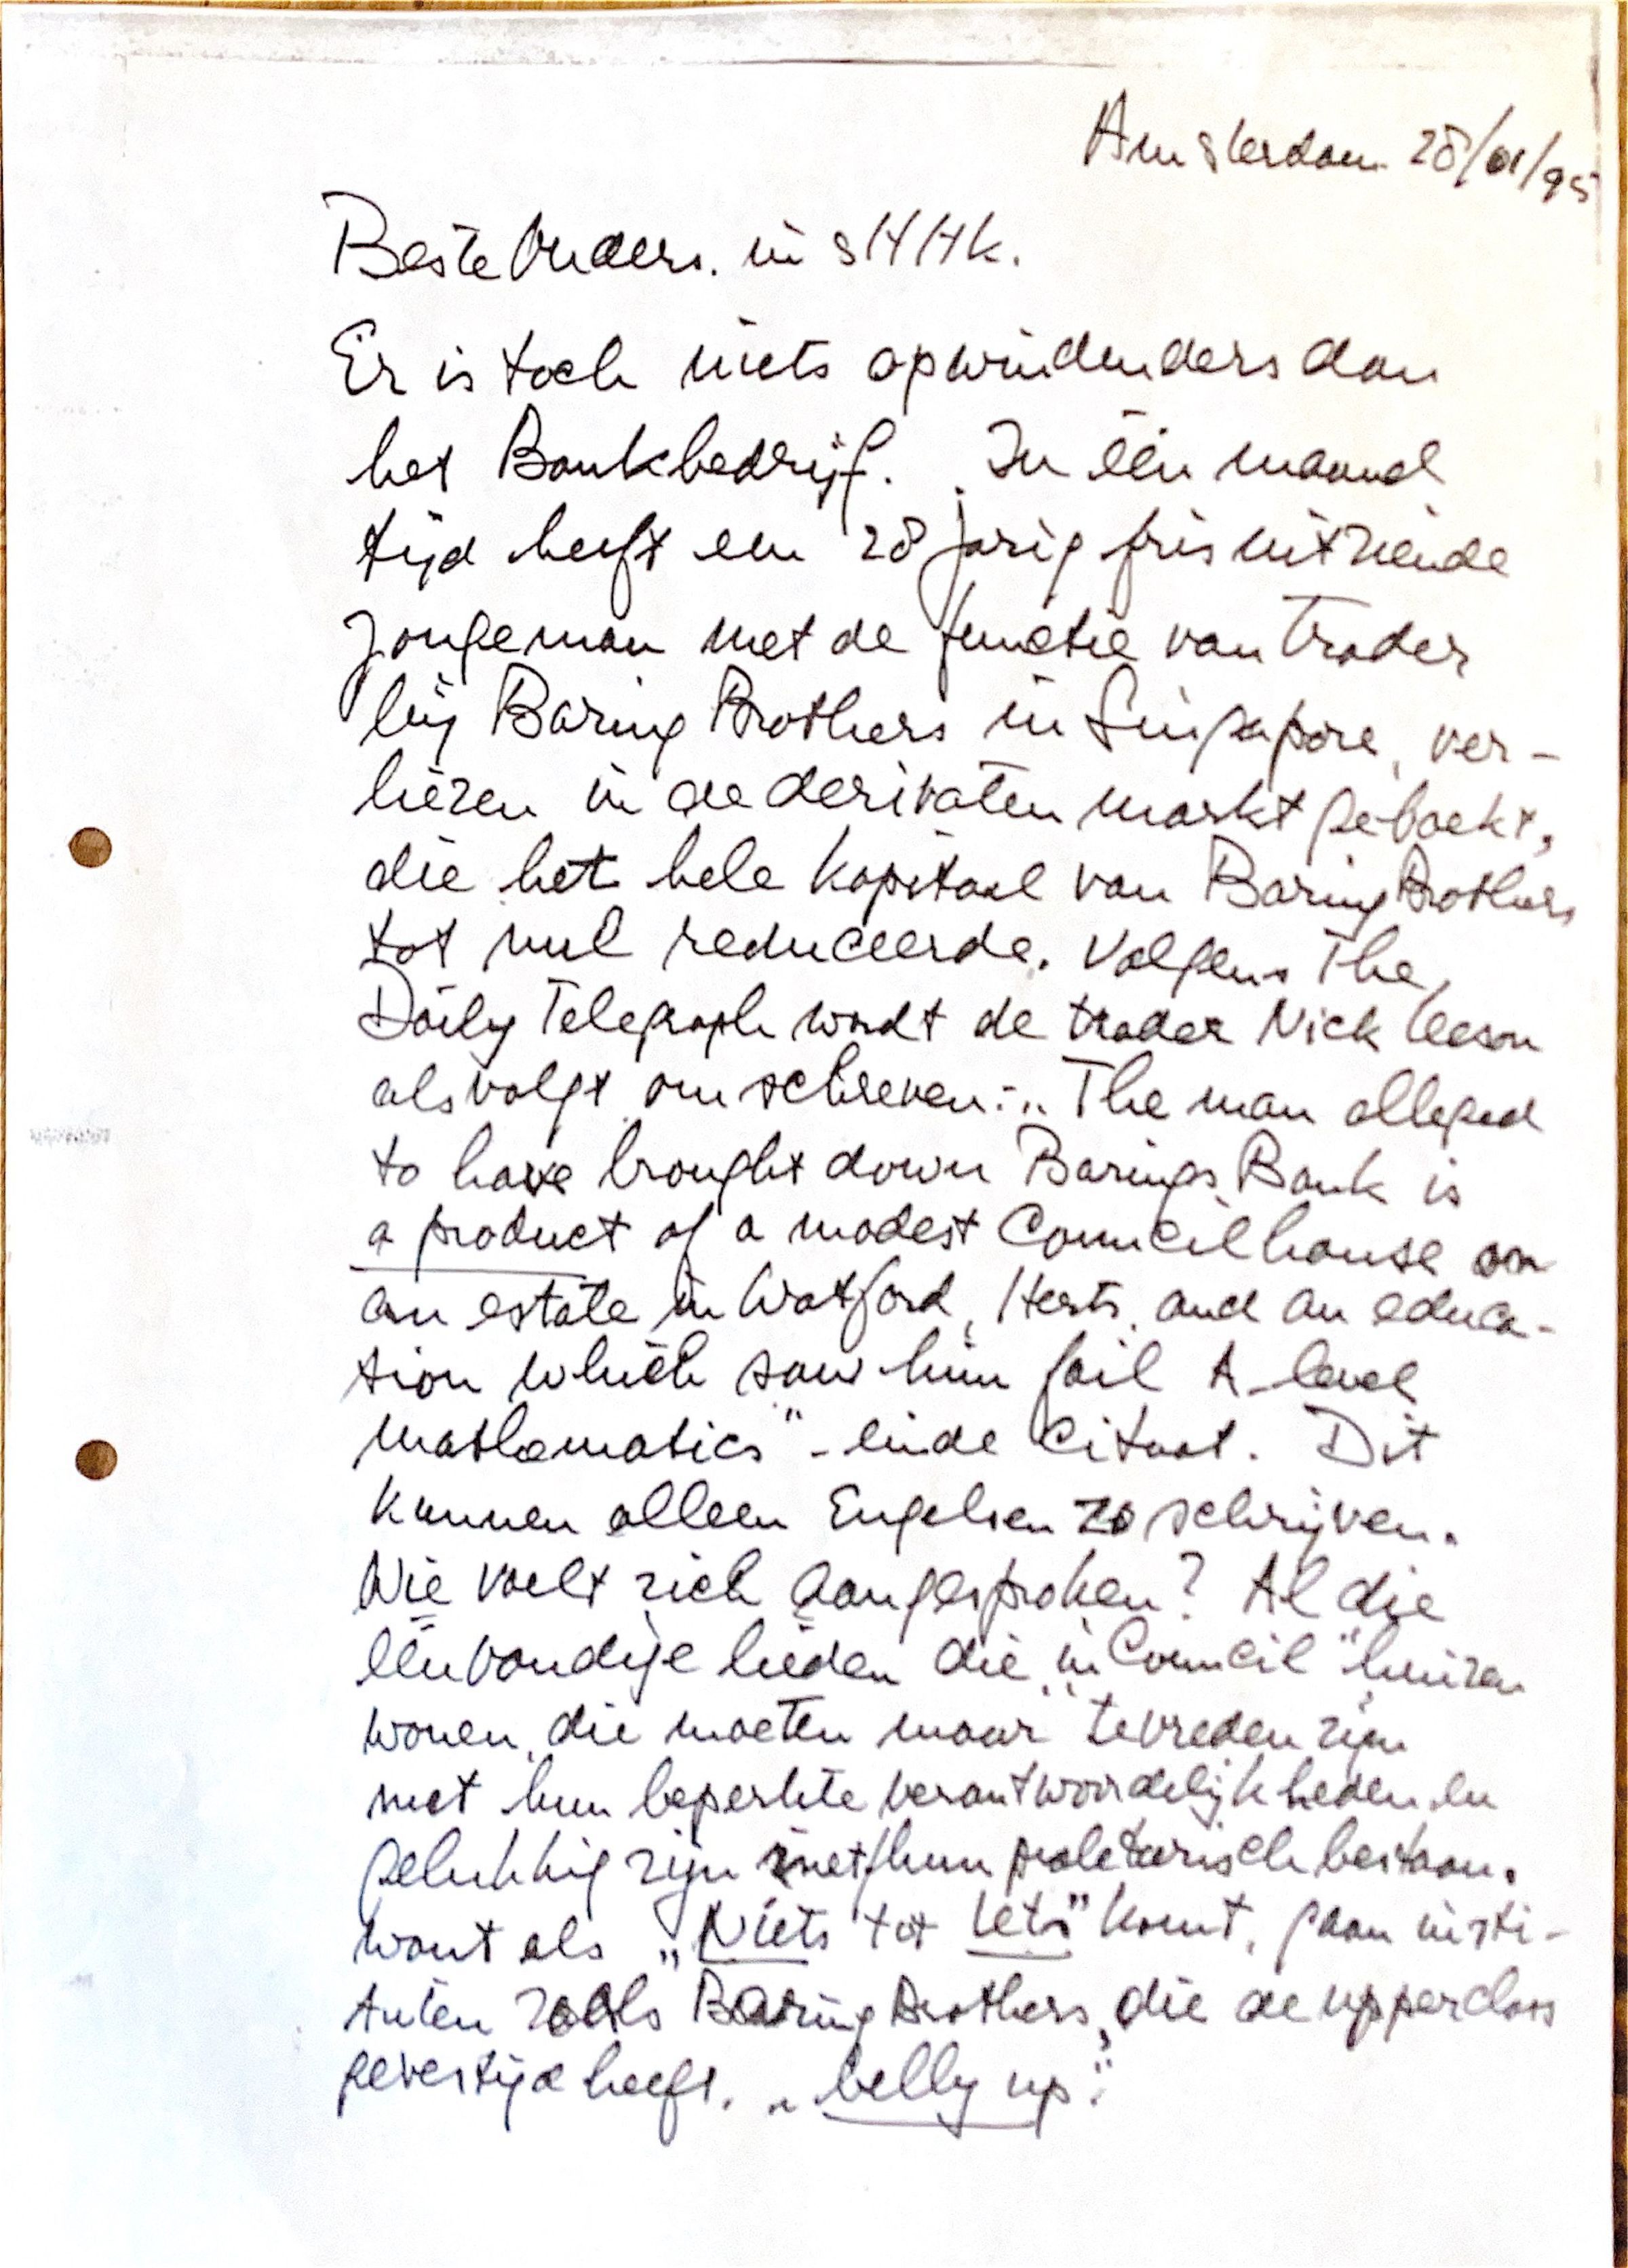 Amsterdam 28/01/95
Beste Ouders. in SHHK.
Er is toch niets opwindenders dan
het Bankbedrijf. In één maand
tijd heeft een 28 jarig fris uitziende
jongeman met de functie van Trader
bij Baring Brothers in Singapore, ver-
liezen in de derivaten markt geboekt,
die het hele kapitaal van Baring Brothers
tot nul reduceerde. Volgens The
Daily Telegraph wordt de trader Nick Leeson
als volgt omschreven: „The man alleged
to have brought down Barings Bank is
a product of a modest Council house on
an estate in Watford, Herts, and an educa-
tion which saw him fail A-level
mathematics" - einde citaat. Dit
kunnen alleen Engelsen zo schrijven.
Wie voelt zich aangesproken? Al die
éénvoudige lieden die „in Council" huizen
wonen, die moeten maar tevreden zijn
met hun beperkte verantwoordelijkheden en
gelukkig zijn met hun proletarisch bestaan.
Want als „Niets tot Iets" komt, gaan insti-
tuten zoals Baring Brothers, die de upperclass
gevestigd heeft. „belly up".